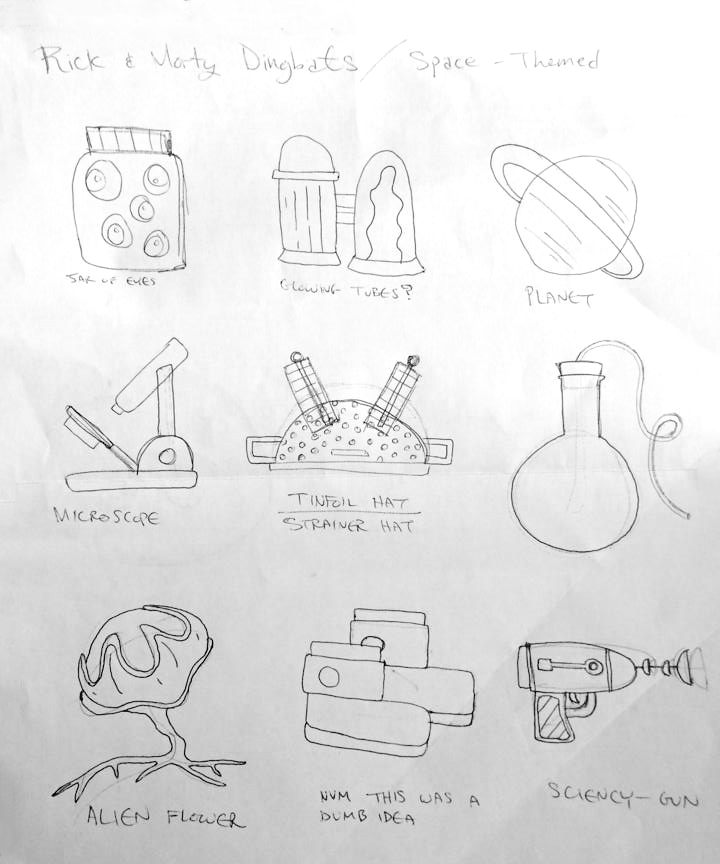 Rick & Morty Dingbats / Space - Themed
JAR OF EYES
GLOWING TUBES?
PLANET
MICROSCOPE
TINFOIL HAT
STRAINER HAT
ALIEN FLOWER
NVM THIS WAS A
DUMB IDEA
SCIENCY-GUN